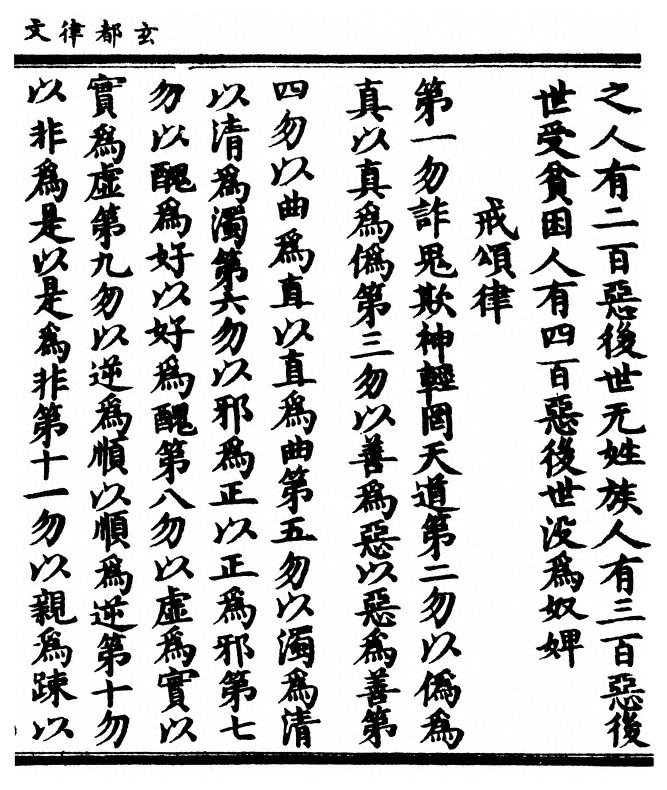 玄都律文
之人有二百惡後世无姓族人有三百惡後
世受貧困人有四百惡後世没爲奴婢
戒頌律
第一勿詐鬼欺神輕罔天道第二勿以僞爲
真以真爲僞第三勿以善爲惡以惡爲善第
四勿以曲爲直以直爲曲第五勿以濁爲清
以清爲濁第六勿以邪爲正以正爲邪第七
勿以醜爲好以好爲醜第八勿以虛爲實以
實爲虛第九勿以逆爲順以順爲逆第十勿
以非爲是以是爲非第十一勿以親爲踈以